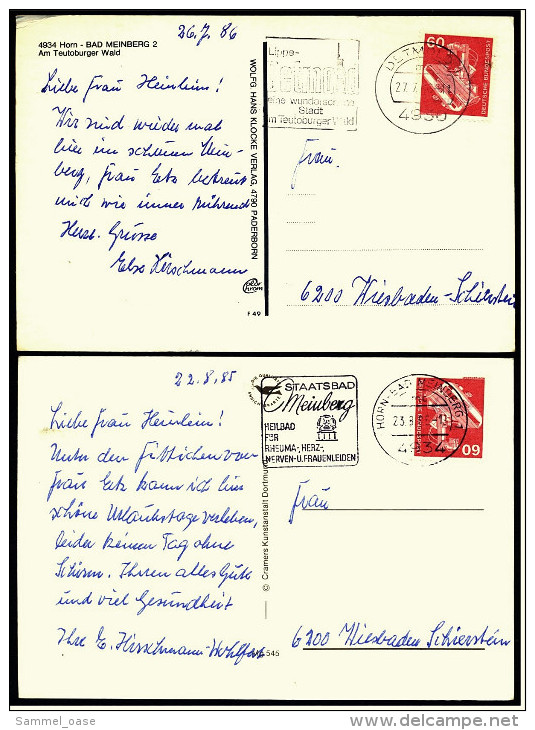 4934 Horn - BAD MEINBERG 2
Am Teutoburger Wald
26.7.86
Liebe Frau Heinlein!
Wir sind wieder mal
hier im schönen Mein-
berg, Frau Etz betreut
mich wie immer rührend
Herzl. Grüsse
Else Hirschmann
WOLFG. HANS KLOCKE VERLAG, 4790 PADERBORN
F 49
Lippe-
Detmold
eine wunderschöne
Stadt
am Teutoburger Wald
DETMOLD
27.7.
4930
60
DEUTSCHE BUNDESPOST
Frau
6200 Wiesbaden-Schierstein
22.8.85
Liebe Frau Heinlein!
Unter den Fittichen von
Frau Etz kann ich hier
schöne Urlaubstage verleben,
leider keinen Tag ohne
Schirm. Ihnen alles Gute
und viel Gesundheit
Ihre E. Hirschmann-Wohlfart
545
© Cramers Kunstanstalt Dortmund
STAATSBAD
Meinberg
HEILBAD
FÜR
RHEUMA-, HERZ-,
NERVEN-U.FRAUENLEIDEN
HORN-BAD MEINBERG
23.8.
4934
60
Frau
6200 Wiesbaden Schierstein
Sammel_oase
delcampe.net